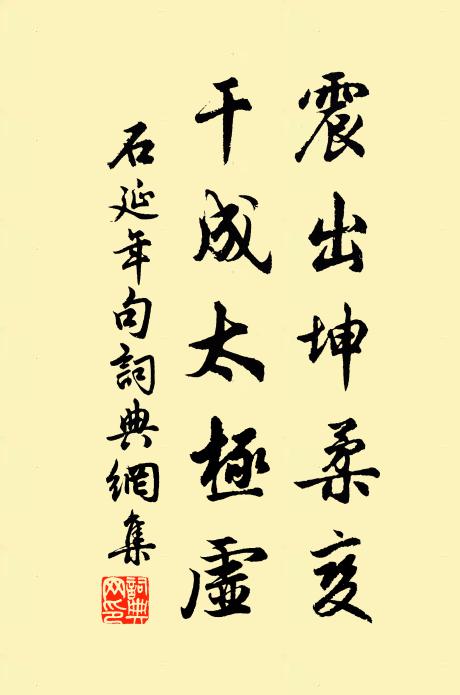 震出坤柔变
干成太極虛
石延年句詞典網集
詞典网印